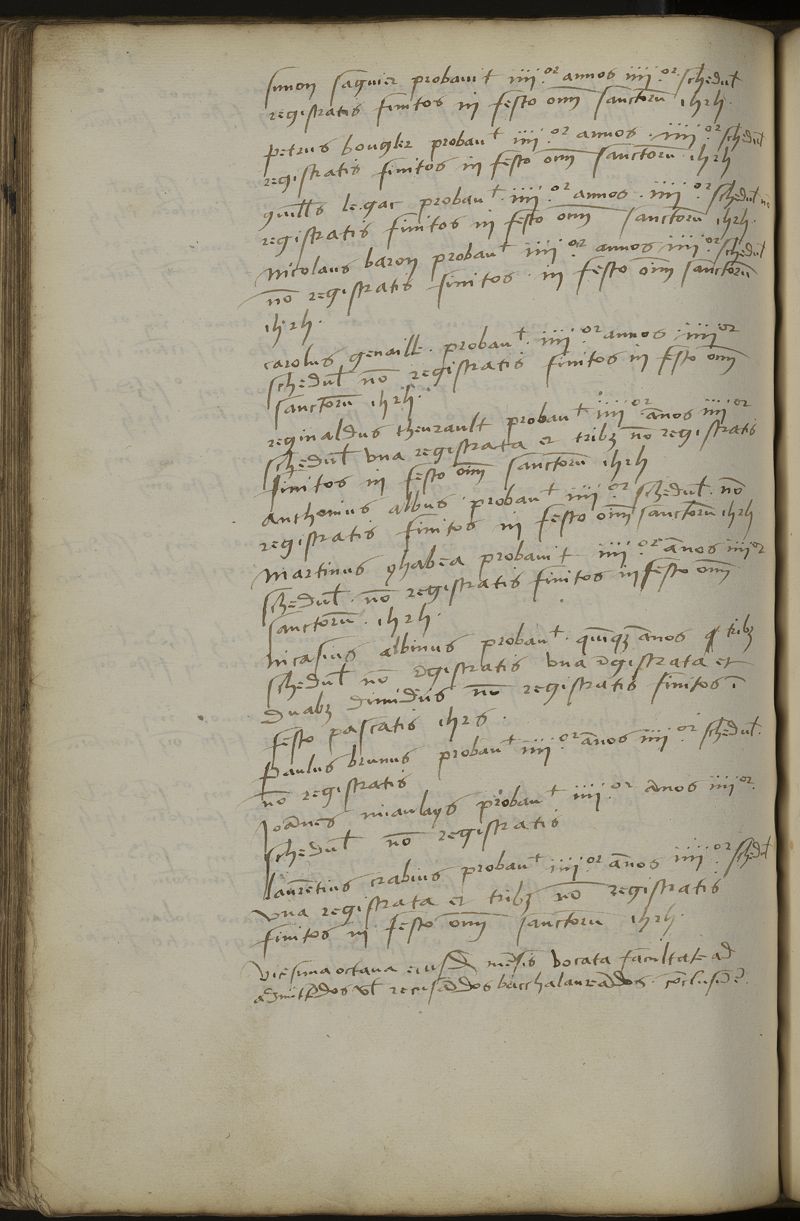 simon saguier probavit iiii.or annos iiii.or schedul
registratis finitos in festo omi sanctoru 1 h r h.
petrus bougler probavt iiii.or annos . iiii.or schedul
registratis finitos in festo omi sanctoru . 1 h r h
guills le.gac probavt . iiii.or annos . iiii.or schedul no
registratis finitos in festo omi sanctoru 1 h r h.
Nicolaus baron probavt iiii.or annos iiii.or schedul
no registratis finitos . in festo omi sanctoru
1 h r h .
carolus genaille . probavt . iiii.or annos . iiii or
schedul no registratis finitos in festo omi
sanctoru 1 h r h .
reginaldus theurault probavt iiii.or anos iiii or
schedul una registrata et trib3 no registratis
finitos in festo omi sanctoru 1 h r h
Anthonius albus . probavt iiii.or schedul . no
registratis finitos in festo omi sanctoru 1 h r h
Martinus probavit iiii.or anos iiii or
schedul . no registratis finitos in festo omi
sanctoru . 1 h r h .
Nicasius albinus probavt . quiq3 anos trib3
schedul no rgistratis una rgistrata et
duab3 dimidiis no registratis finitos i
festo pascatis 1 h r s .
Paulus brunus probavt iiii.or anos iiii.or schedul .
no registratis
Joanes miaulays probavt iiii.or anos iiii or.
schedul no registratis
laurentius crabius probavt iiii.or anos iiii.or schedul
una registrata et trib3 no registratis
finitos in festo omi sanctoru 1 h r h .
vicesima octava eiusd mesis vocata facultate ad
admittedos vl recusados bacchalaureados . coclusu e .